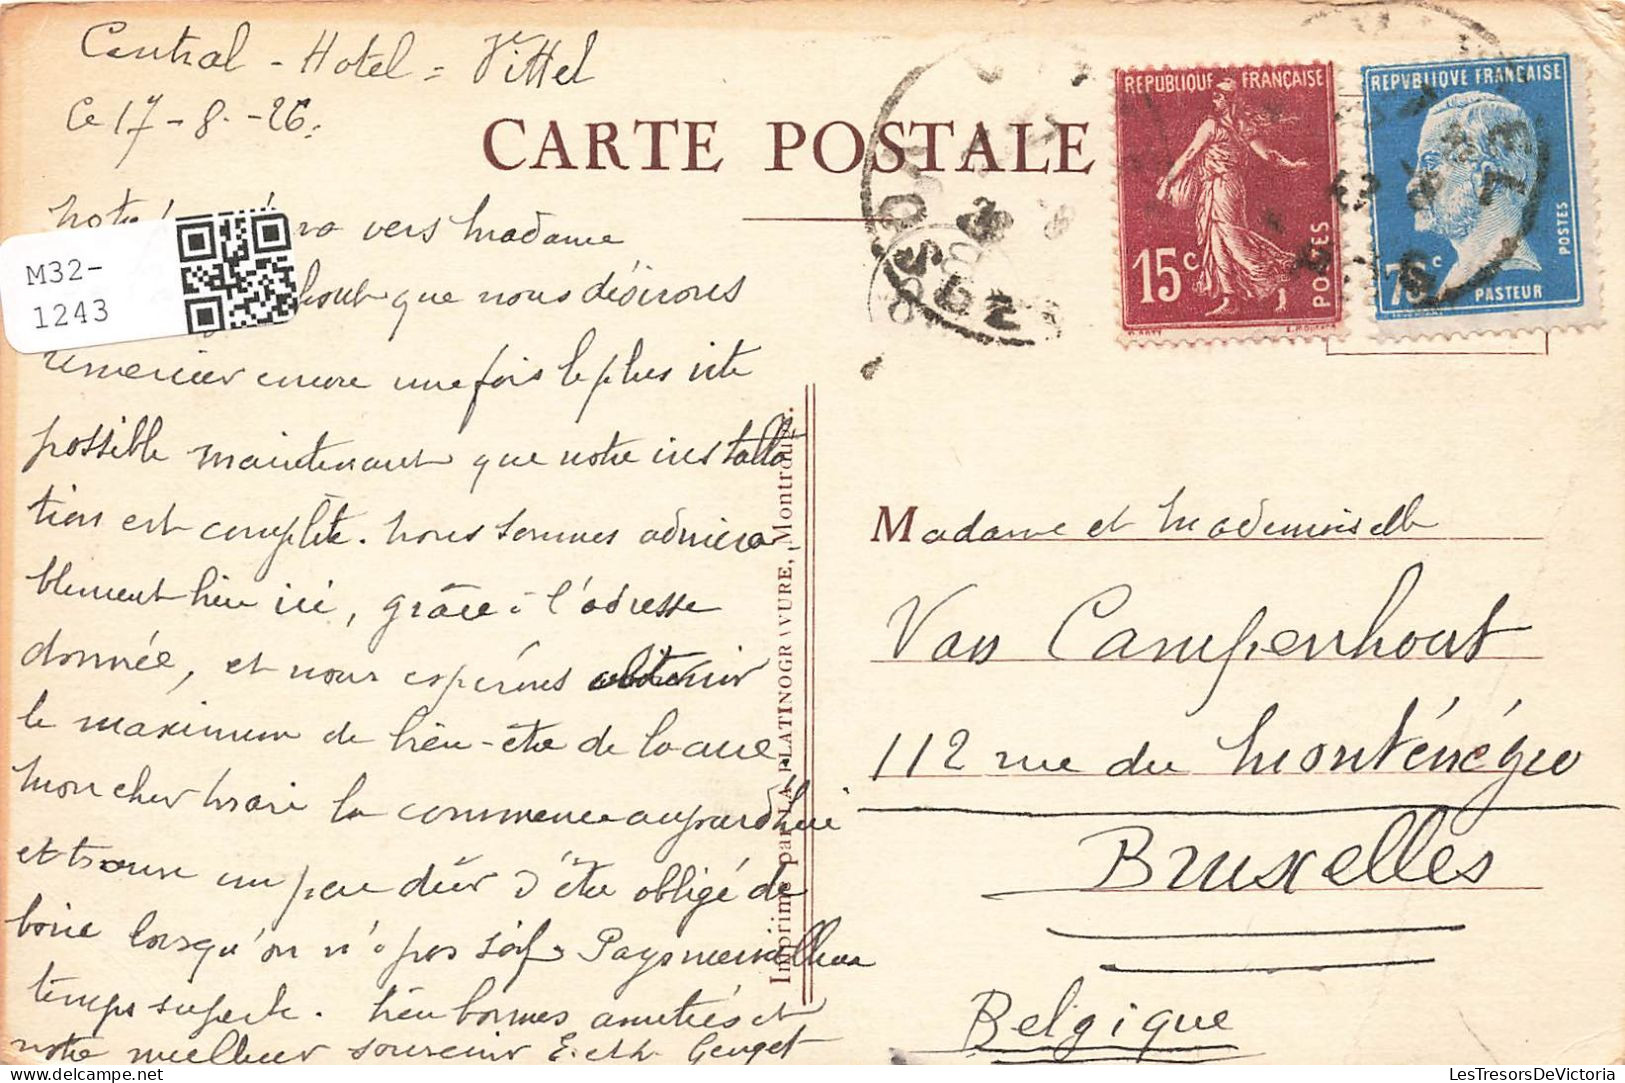 Central - Hotel = Vittel
Ce 17 - 8 - 26.
CARTE POSTALE
REPUBLIQUE FRANÇAISE
15c
POSTES
REPVBLIQVE FRANCAISE
75c
PASTEUR
POSTES
M32-
1243
vers Madame
que nous désirons
remercier encore une fois le plus vite
possible maintenant que notre installa
tion est complète. Nous sommes admira
blement bien ici, grâce à l'adresse
donnée, et nous espérons obtenir
le maximum de bien-être de la cure
Mon cher mari la commence aujourd'hui
et trouve un peu dur d'être obligé de
boire lorsqu'on n'a pas soif. Pays merveilleux
temps superbe. Bien bonnes amitiés et
notre meilleur souvenir E. et H.
Imprimé par LA PLATINOGRAVURE, Montrouge.
Madame et Mademoiselle
Van Campenhout
112 rue du Monténégro
Bruxelles
Belgique
LesTresorsDeVictoria